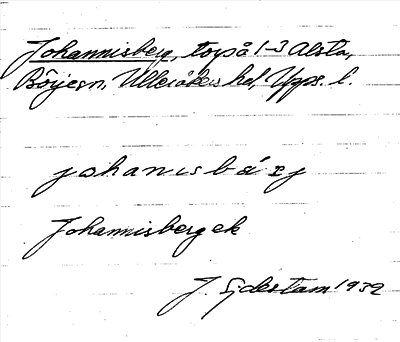 Johannisberg, torp å 1-3 Alsta,
Börje sn, Ulleråkers hd, Upps. l.
johanisbárj
Johannisberg ek
J. Sjdestam 1932